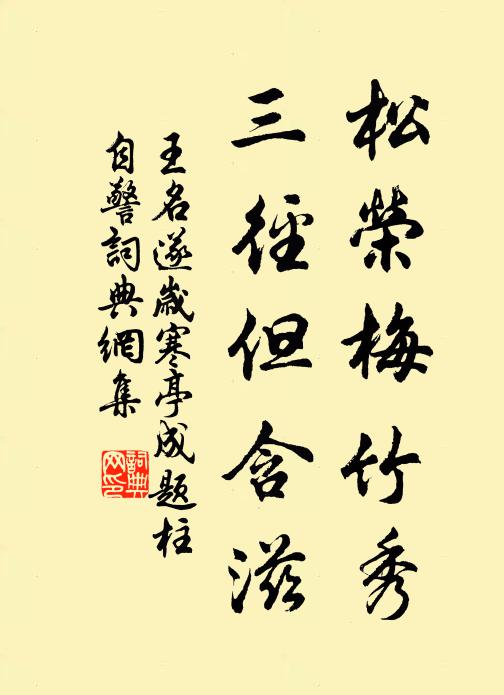 松榮梅竹秀
三徑但含滋
王名遂歲寒亭成題柱
自警詞典網集
詞典网印